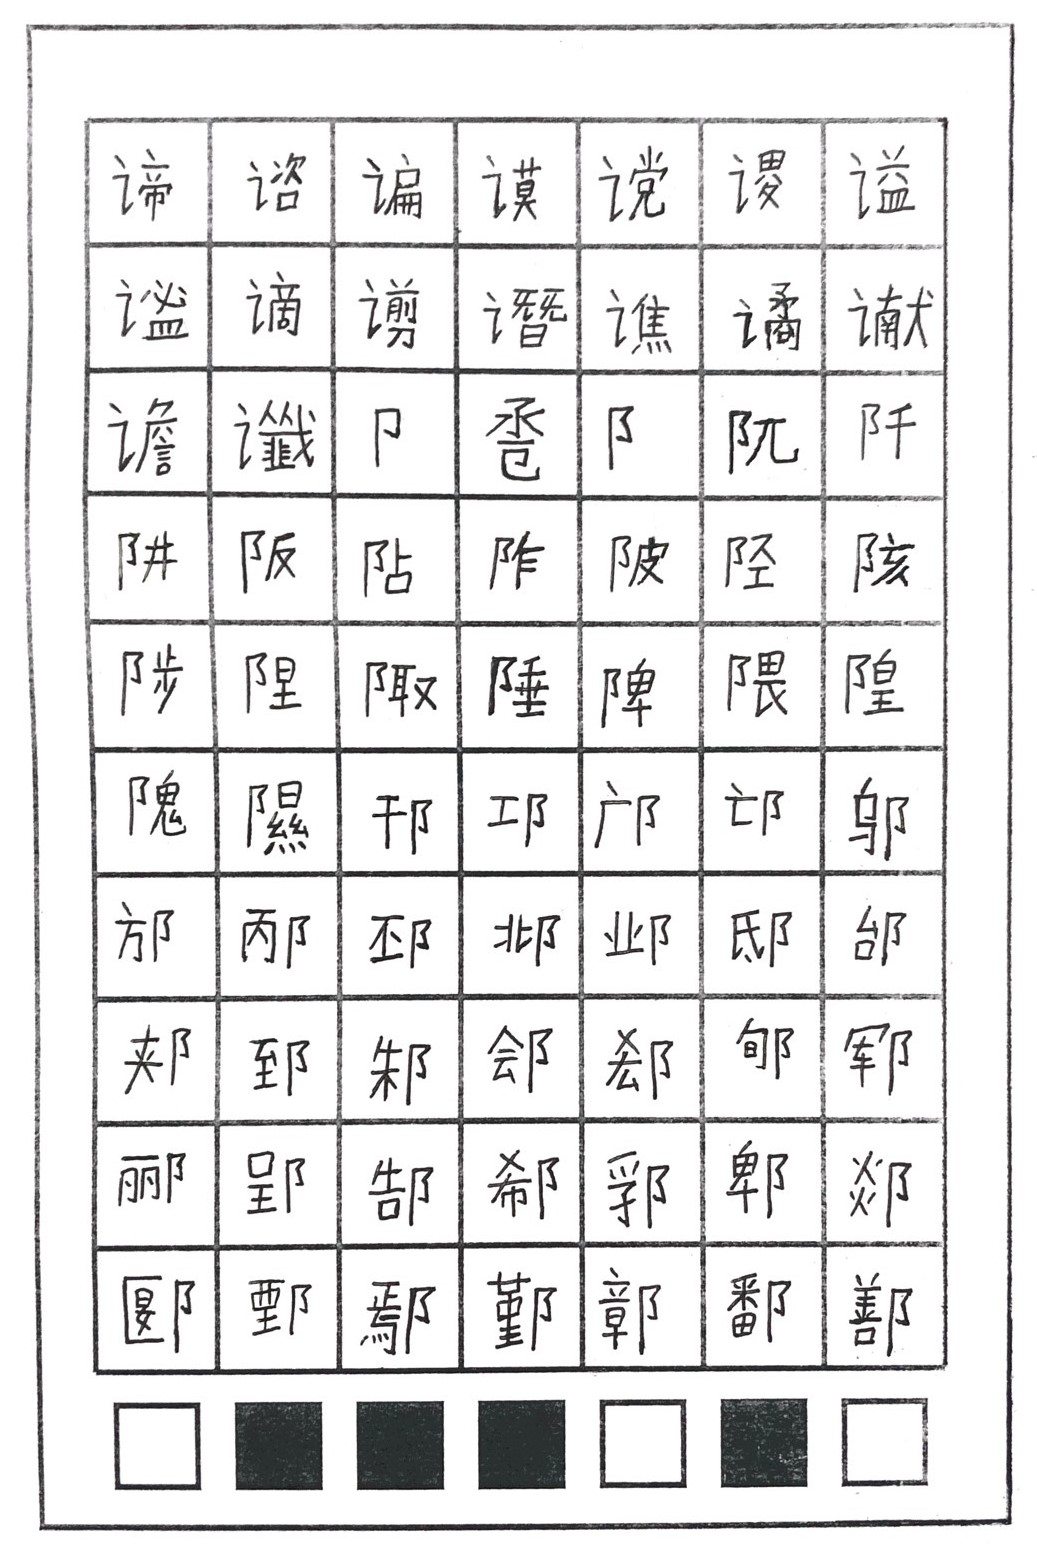 谛 谘 谝 谟 谠 谡 谥
谧 谪 谫 谮 谯 谲 谳
谵 谶 卩 卺 阝 阢 阡
阱 阪 阽 阼 陂 陉 陔
陟 陧 陬 陲 陴 隈 隍
隗 隰 邗 邛 邝 邙 邬
邡 邴 邳 邶 邺 邸 邰
郏 郅 邾 郐 郄 郇 郓
郦 郢 郜 郗 郛 郫 郯
郾 鄄 鄢 鄞 鄣 鄱 鄯